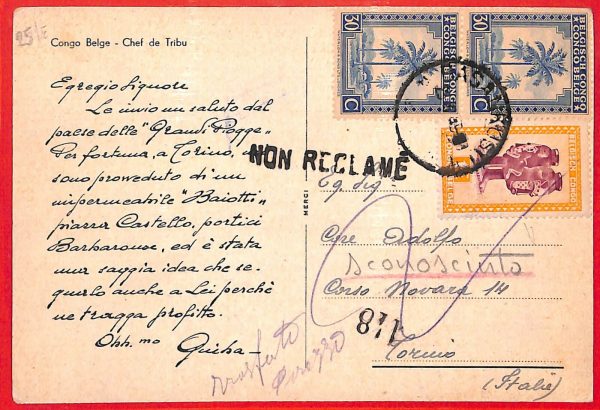 25/E
Congo Belge - Chef de Tribu
Egregio Signore
Le invio un saluto dal
paese delle "Grandi Piogge"
Per fortuna, a Torino,
sono proveduto di un
impermeabile "Baiotti"
piazza Castello, portici
Barbaroux, ed è stata
una saggia idea che se-
guirlo anche a Lei perchè
ne tragga profitto.
Obb.mo
NON RECLAMÉ
MERCI
30 C
BELGISCH CONGO
CONGO BELGE
30 C
BELGISCH CONGO
CONGO BELGE
BELGISCH CONGO
CONGO BELGE
Eg. Sig.
Adolfo
sconosciuto
Corso Novara 14
118
Torino
(Italie)